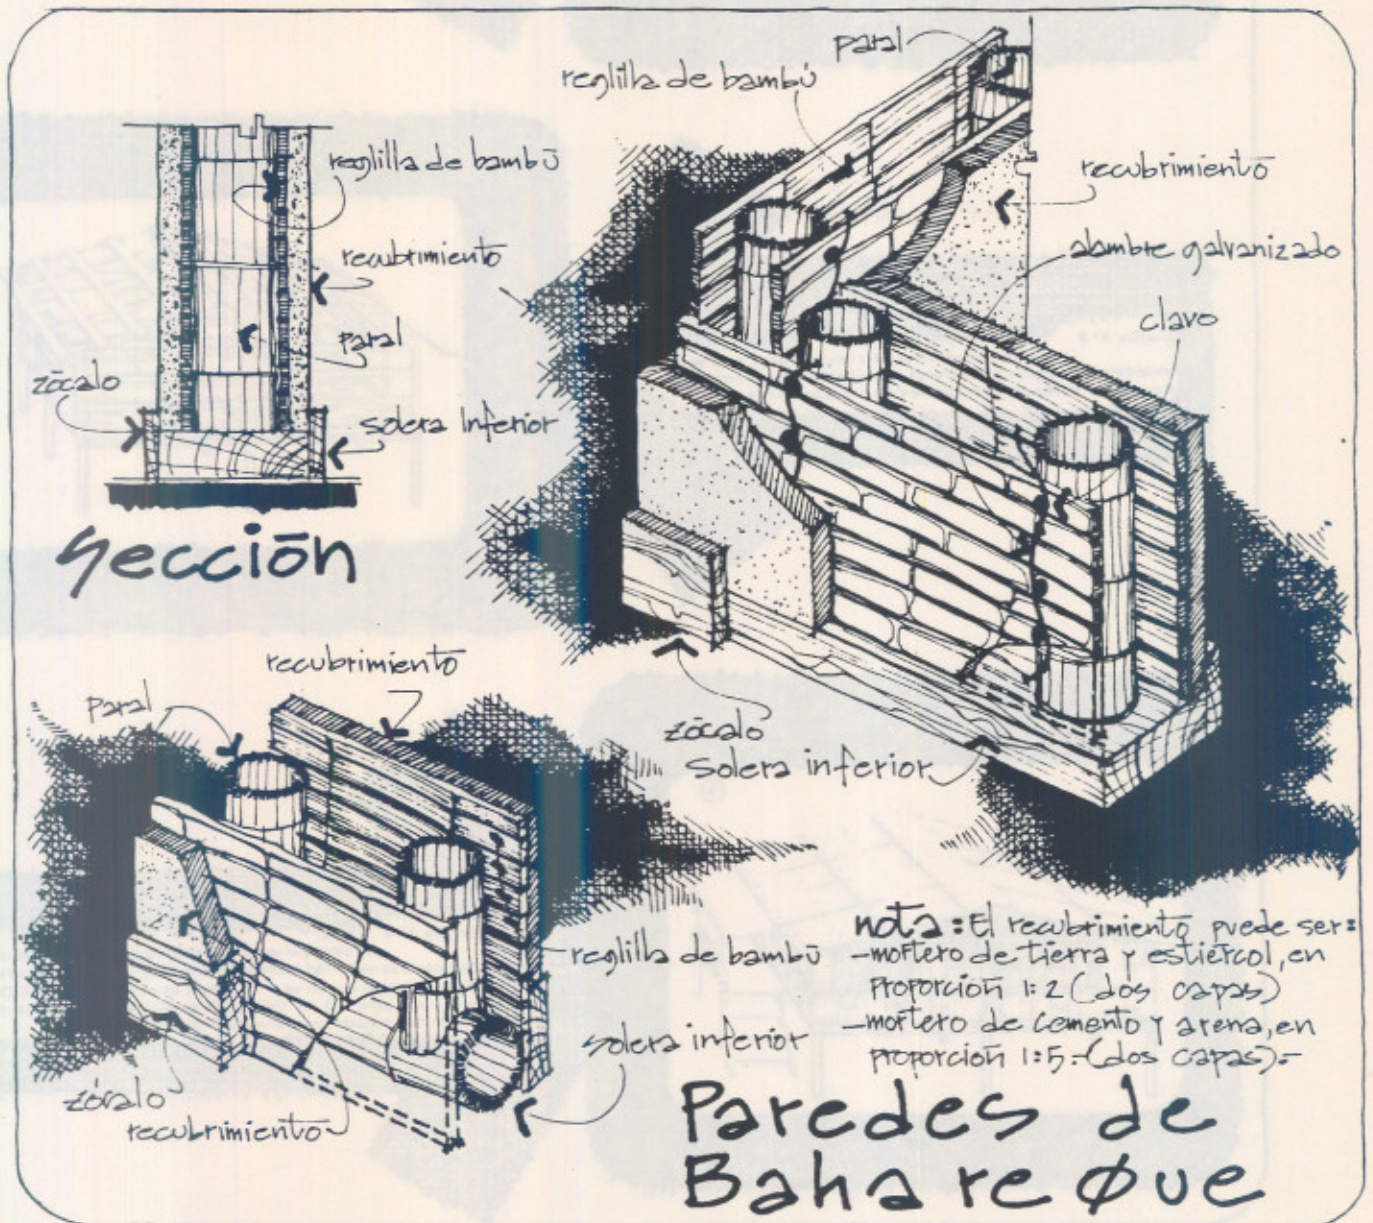 reglilla de bambú
recubrimiento
paral
zócalo
solera inferior
Sección
paral
reglilla de bambú
recubrimiento
alambre galvanizado
clavo
zócalo
Solera inferior
recubrimiento
Paral
reglilla de bambú
solera inferior
zócalo
recubrimiento
nota: El recubrimiento puede ser:
-mortero de tierra y estiércol, en
proporción 1:2 (dos capas)
-mortero de cemento y arena, en
proporción 1:5.-(dos capas).-
Paredes de
Bahareque